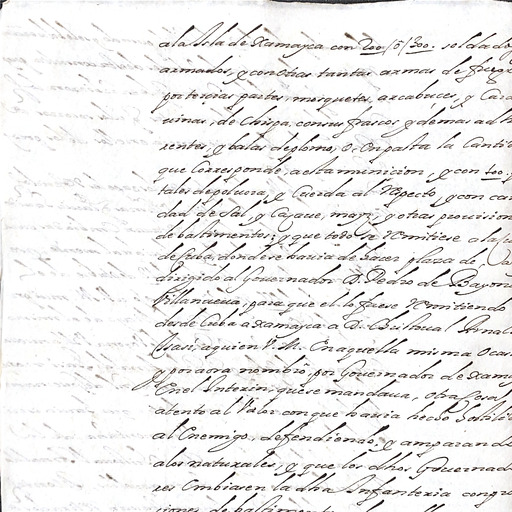 a la Isla de Xamayca con 200 / ô / 300 soldado
armados, y con otras tantas armas de fuego
por tercias partes, mosquetes, arcabuces, y Cara
uinas, de Chispa, con sus frascos, y demas adhe
rentes, y balas de plomo, o en pasta la Canti
que Corresponde, a esta municion, y con 100
tales de poluora, y Cuerda al Respecto, y con can
dad de Sal, y Cazaue, mayz, y otras prouision
de bastimentos; y que todo se Remitiese a la
de Cuba, donde se hauia de hacer plaza de
dirigido al Gouernador D. Pedro de Bayon
Villanueua, para que el lo fuese Remitiendo
desde Cuba a Xamayca a D. Christoual Arnal
Ysasi, a quien V. M. en aquella misma Ocas
y por aora nombró, por Gouernador de Xamay
En el Interin, que se mandaua, otra cosa
atento al Valor con que hauia hecho hostili
al Enemigo, defendiendo, y amparando
a los naturales, y que los dhos Gouernado
res Embiasen la dha Infanteria con
ciones, de bastimentos